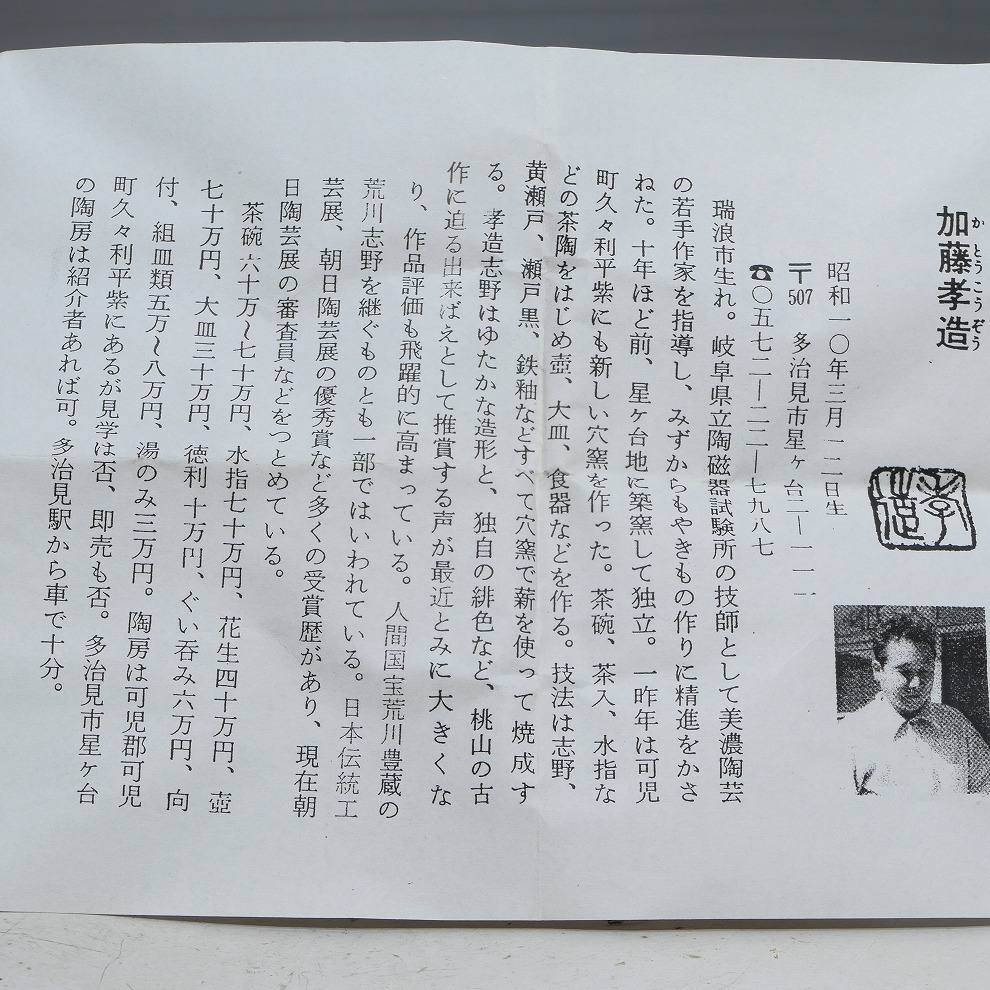 加藤孝造
かとうこうぞう
昭和一〇年三月一二日生
〒507 多治見市星ヶ台二―一一一
☎〇五七二―二二―七九八七
瑞浪市生れ。岐阜県立陶磁器試験所の技師として美濃陶芸
の若手作家を指導し、みずからもやきもの作りに精進をかさ
ねた。十年ほど前、星ケ台地に築窯して独立。一昨年は可児
町久々利平紫にも新しい穴窯を作った。茶碗、茶入、水指な
どの茶陶をはじめ壺、大皿、食器などを作る。技法は志野、
黄瀬戸、瀬戸黒、鉄釉などすべて穴窯で薪を使って焼成す
る。孝造志野はゆたかな造形と、独自の緋色など、桃山の古
作に迫る出来ばえとして推賞する声が最近とみに大きくな
り、作品評価も飛躍的に高まっている。人間国宝荒川豊蔵の
荒川志野を継ぐものとも一部ではいわれている。日本伝統工
芸展、朝日陶芸展の優秀賞など多くの受賞歴があり、現在朝
日陶芸展の審査員などをつとめている。
茶碗六十万〜七十万円、水指七十万円、花生四十万円、壺
七十万円、大皿三十万円、徳利十万円、ぐい呑み六万円、向
付、組皿類五万〜八万円、湯のみ三万円。陶房は可児郡可児
町久々利平紫にあるが見学は否、即売も否。多治見市星ヶ台
の陶房は紹介者あれば可。多治見駅から車で十分。
孝造